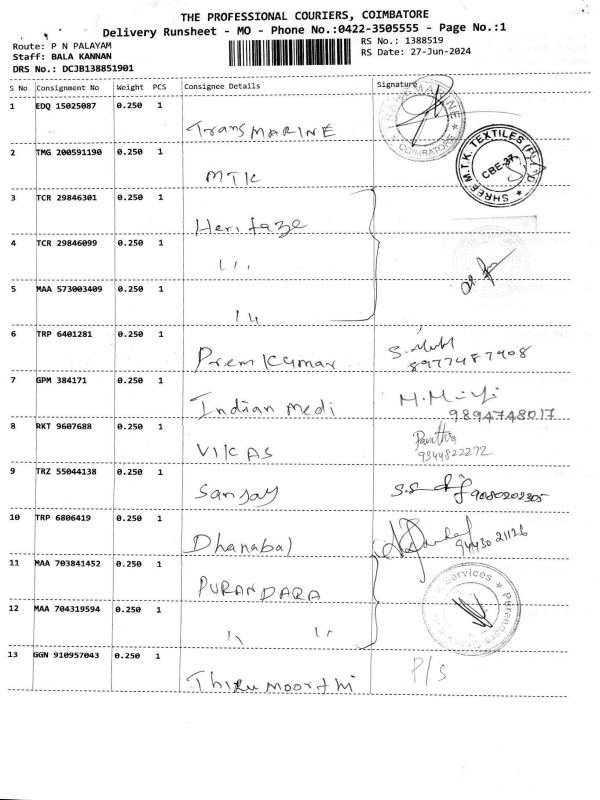 THE PROFESSIONAL COURIERS, COIMBATORE
Delivery Runsheet - MO - Phone No.:0422-3505555 - Page No.:1
Route: P N PALAYAM
RS No.: 1388519
Staff: BALA KANNAN
RS Date: 27-Jun-2024
DRS No.: DCJB138851901
S No Consignment No Weight PCS Consignee Details Signature
1 EDQ 15025087 0.250 1
TransMARINE
TRANS MARINE
COIMBATORE
2 TMG 200591190 0.250 1
MTK
SHREE M.T.K. TEXTILES (P) LTD
CBE-37
3 TCR 29846301 0.250 1
Heritage
4 TCR 29846099 0.250 1
5 MAA 573003409 0.250 1
6 TRP 6401281 0.250 1
Prem Kumar
8977487908
7 GPM 384171 0.250 1
Indian Medi
9894748017
8 RKT 9607688 0.250 1
VIKAS
Pavithra
9344822272
9 TRZ 55044138 0.250 1
Sanjay
9080202305
10 TRP 6806419 0.250 1
Dhanabal
94430 21126
11 MAA 703841452 0.250 1
PURANDARA
Services
12 MAA 704319594 0.250 1
13 GGN 910957043 0.250 1
Thirumoorthi
P/S